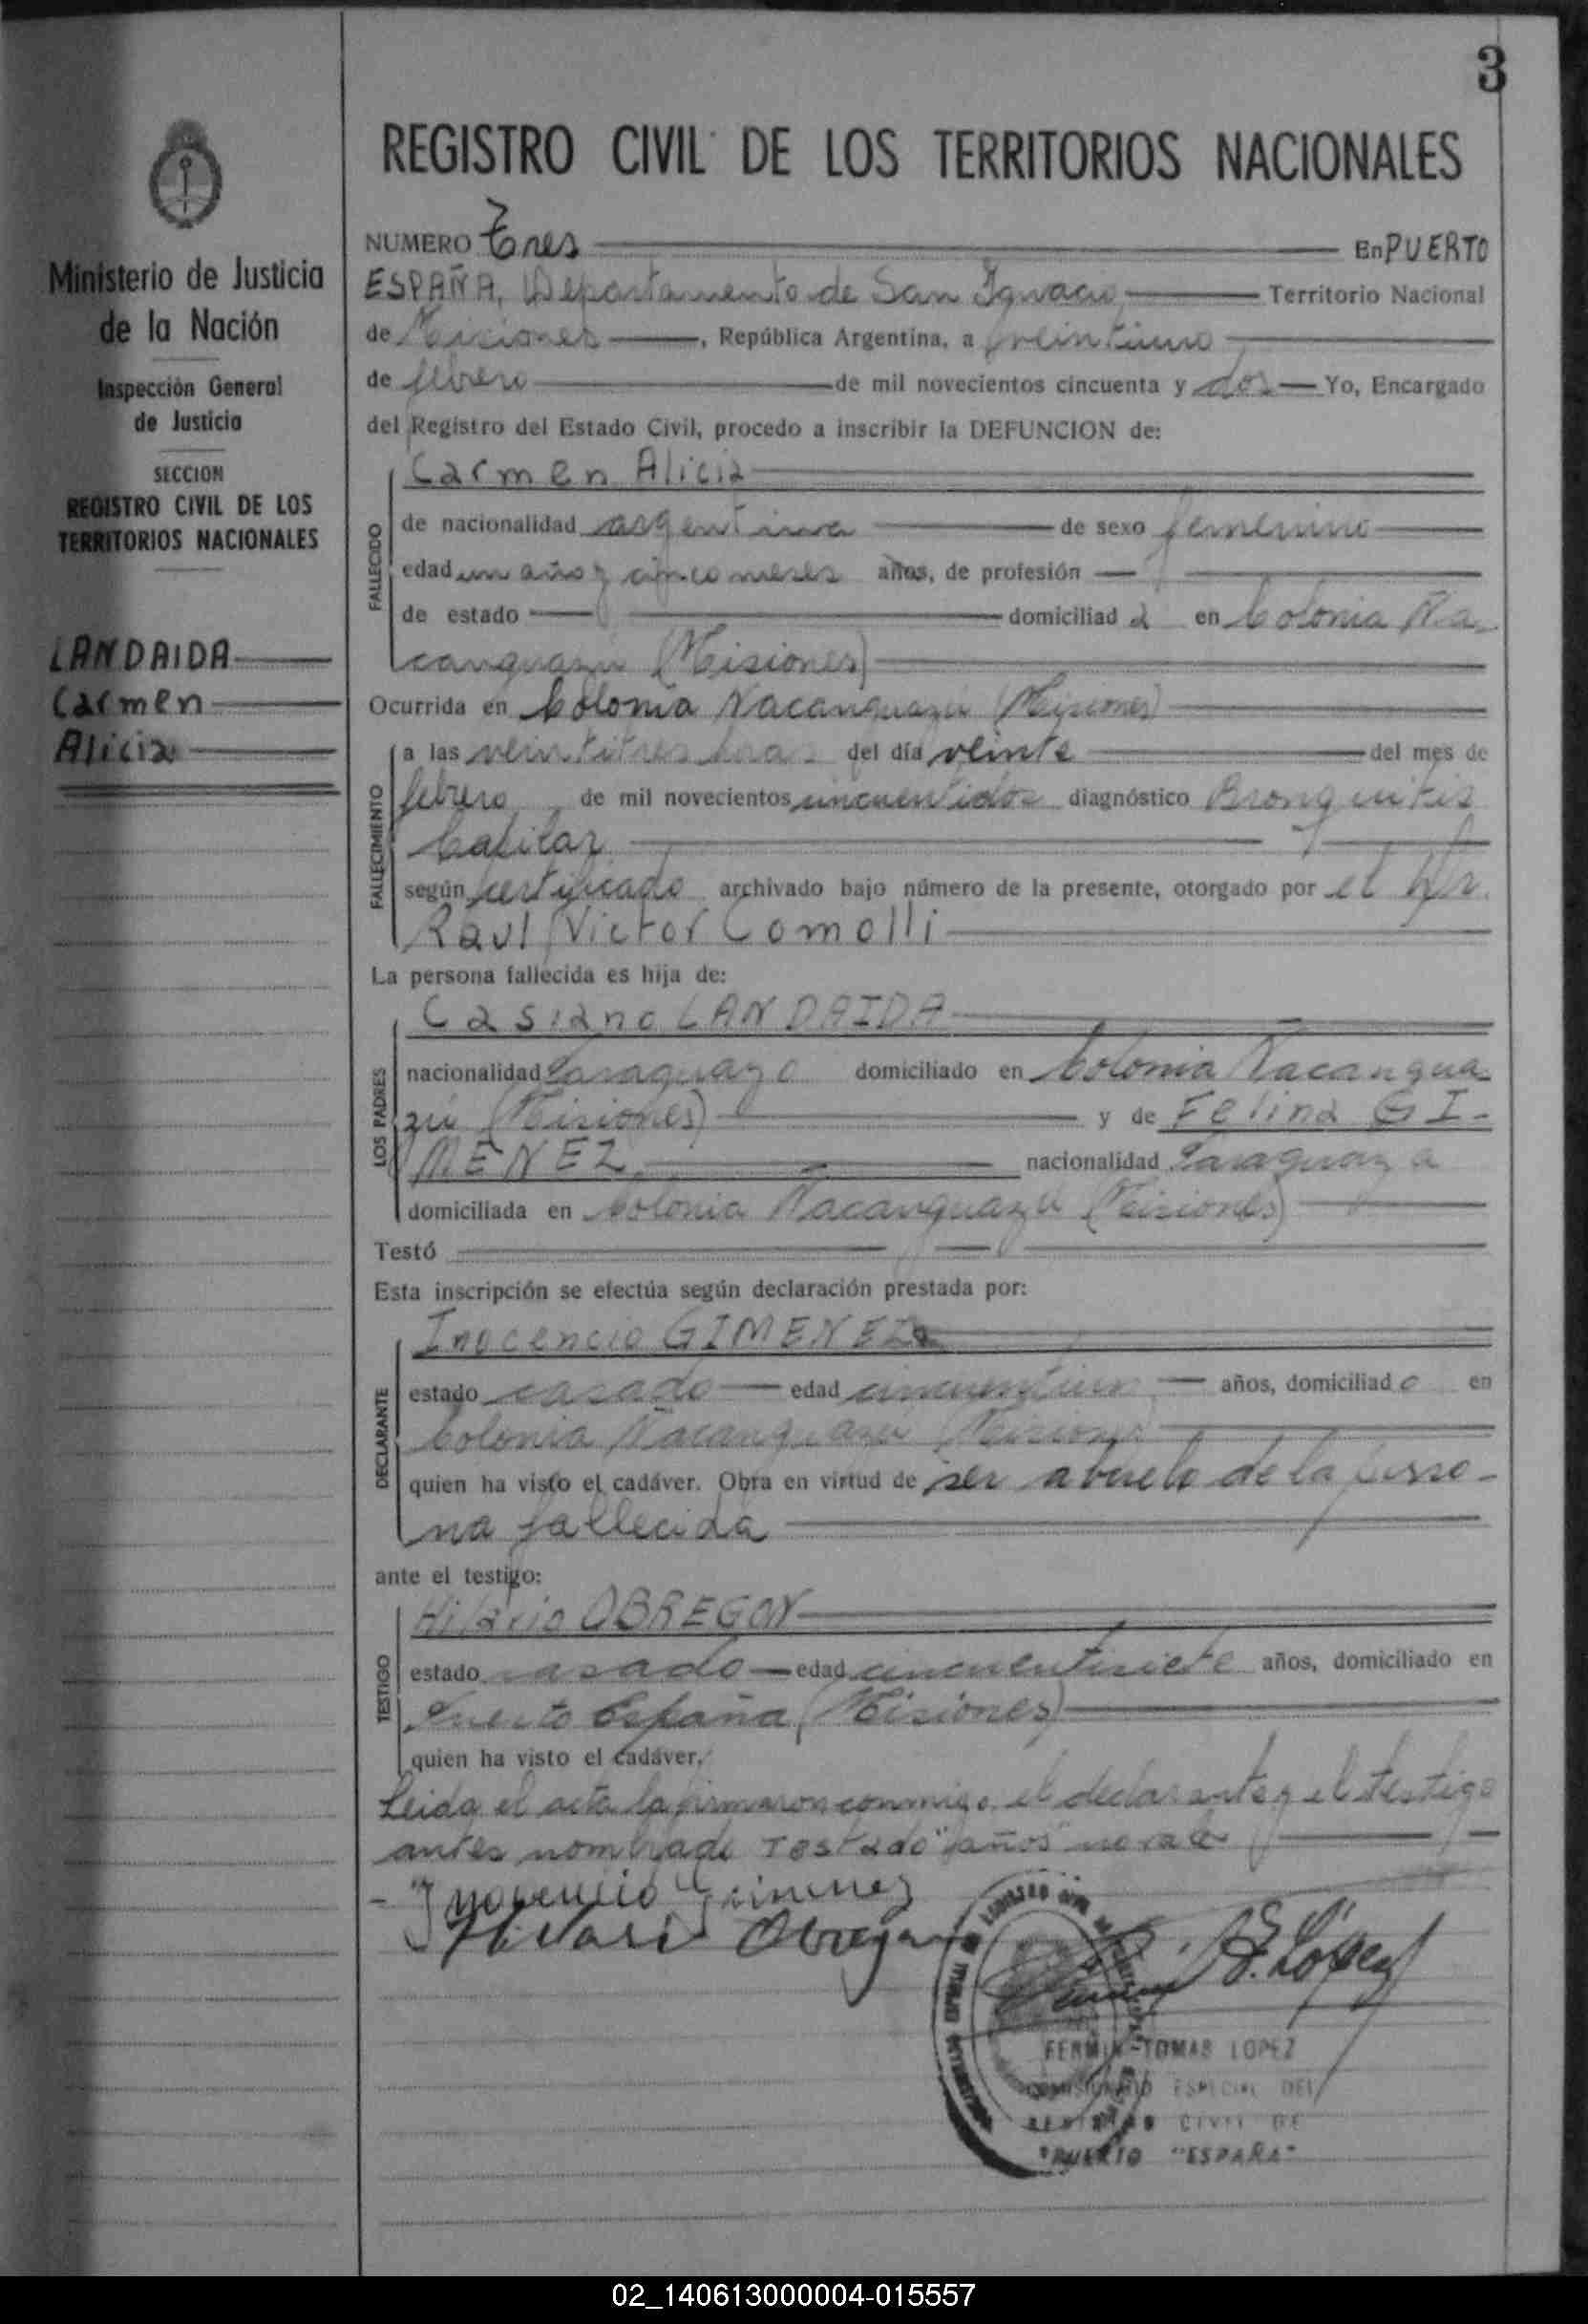 3
REGISTRO CIVIL DE LOS TERRITORIOS NACIONALES
Ministerio de Justicia
de la Nación
Inspección General
de Justicia
SECCION
REGISTRO CIVIL DE LOS
TERRITORIOS NACIONALES
LANDAIDA
Carmen
Alicia
NUMERO Tres En PUERTO
ESPAÑA, Departamento de San Ignacio Territorio Nacional
de Misiones, República Argentina, a veintiuno
de febrero de mil novecientos cincuenta y dos Yo, Encargado
del Registro del Estado Civil, procedo a inscribir la DEFUNCION de:
FALLECIDO
Carmen Alicia
de nacionalidad argentina de sexo femenino
edad un año y cinco meses años, de profesión
de estado domiciliad a en Colonia Ña-
canguazú (Misiones)
Ocurrida en Colonia Ñacanguazú (Misiones)
FALLECIMIENTO
a las veintitres horas del día veinte del mes de
febrero de mil novecientos cincuentidos diagnóstico Bronquitis
Capilar
según certificado archivado bajo número de la presente, otorgado por el Dr.
Raul Victor Comolli
La persona fallecida es hija de:
LOS PADRES
Casiano LANDAIDA
nacionalidad Paraguayo domiciliado en Colonia Ñacangua-
zú (Misiones) y de Felina GI-
MENEZ nacionalidad Paraguaya
domiciliada en Colonia Ñacanguazú (Misiones)
Testó
Esta inscripción se efectúa según declaración prestada por:
DECLARANTE
Inocencio GIMENEZ
estado casado edad años, domiciliad o en
Colonia Ñacanguazú (Misiones)
quien ha visto el cadáver. Obra en virtud de ser abuelo de la perso-
na fallecida
ante el testigo:
TESTIGO
Hilario OBREGON
estado casado edad cincuentisiete años, domiciliado en
Puerto España (Misiones)
quien ha visto el cadáver.
Leida el acta la firmaron conmigo el declarante y el testigo
antes nombrado Testado "años" no vale
Inocencio Gimenez
Hilario Obregon
F. López
FERMIN TOMAS LOPEZ
COMISIONADO ESPECIAL DEL
REGISTRO CIVIL DE
"PUERTO "ESPAÑA"
02_140613000004-015557